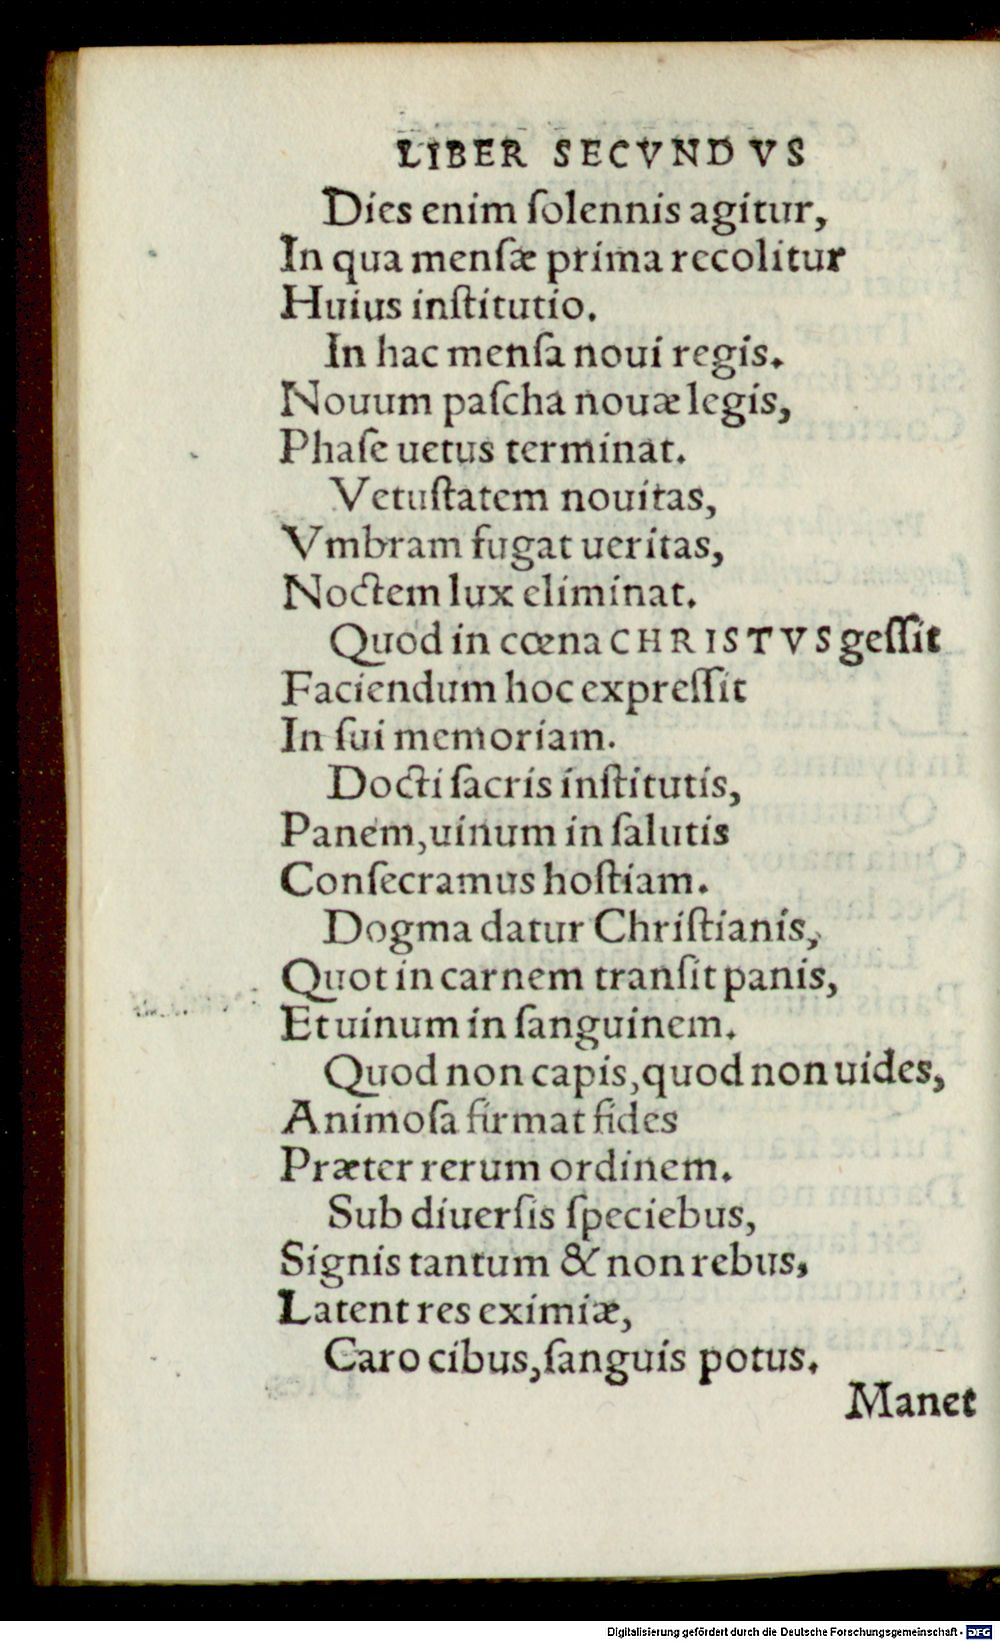 LIBER SECVNDVS
Dies enim ſolennis agitur,
In qua menſæ prima recolitur
Huius inſtitutio.
In hac menſa noui regis.
Nouum paſcha nouæ legis,
Phaſe uetus terminat.
Vetuſtatem nouitas,
Vmbram fugat ueritas,
Noctem lux eliminat.
Quod in cœna CHRISTVS geſſit
Faciendum hoc expreſſit
In ſui memoriam.
Docti ſacris inſtitutis,
Panem, uinum in ſalutis
Conſecramus hoſtiam.
Dogma datur Chriſtianis,
Quot in carnem tranſit panis,
Et uinum in ſanguinem.
Quod non capis, quod non uides,
Animoſa firmat fides
Præter rerum ordinem.
Sub diuerſis ſpeciebus,
Signis tantum & non rebus,
Latent res eximiæ,
Caro cibus, ſanguis potus.
Manet
Digitalisierung gefördert durch die Deutsche Forschungsgemeinschaft - DFG